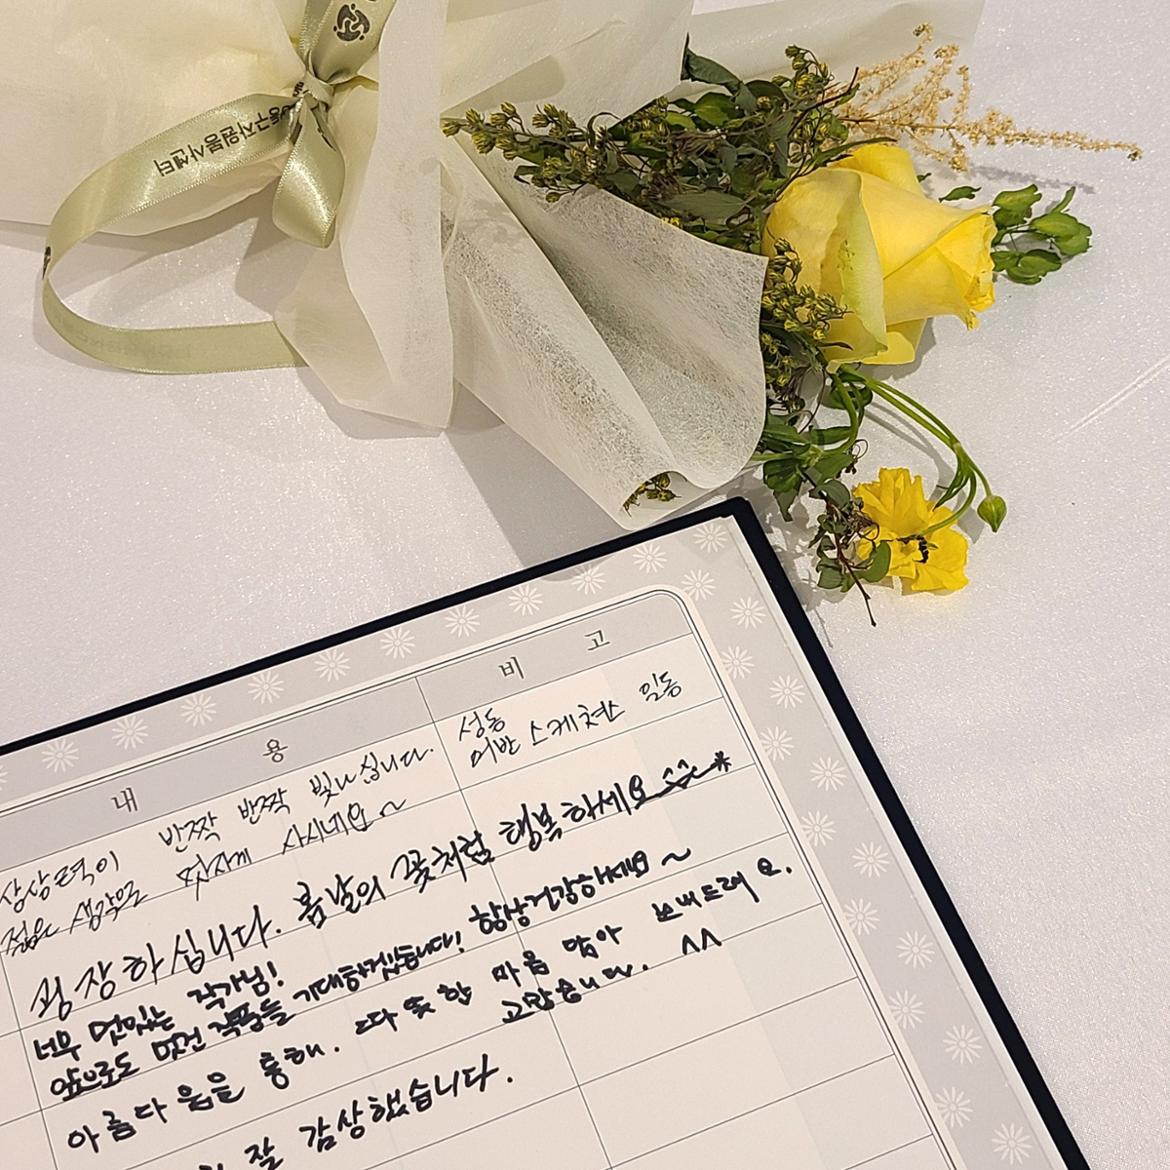 자원봉사센터
내 용
비 고
상상력이 반짝 반짝 빛나십니다.
젊은 생각으로 멋지게 사시네요~
성동
어반 스케쳐스 일동
굉장하십니다. 봄날의 꽃처럼 행복하세요 ^^*
너무 멋있는 작가님!
앞으로도 멋진 작품들 기대하겠습니다! 항상건강하세요~
아름다움을 통해. 따뜻한 마음 담아 보내드려요.
고맙습니다. ^^
잘 감상했습니다.